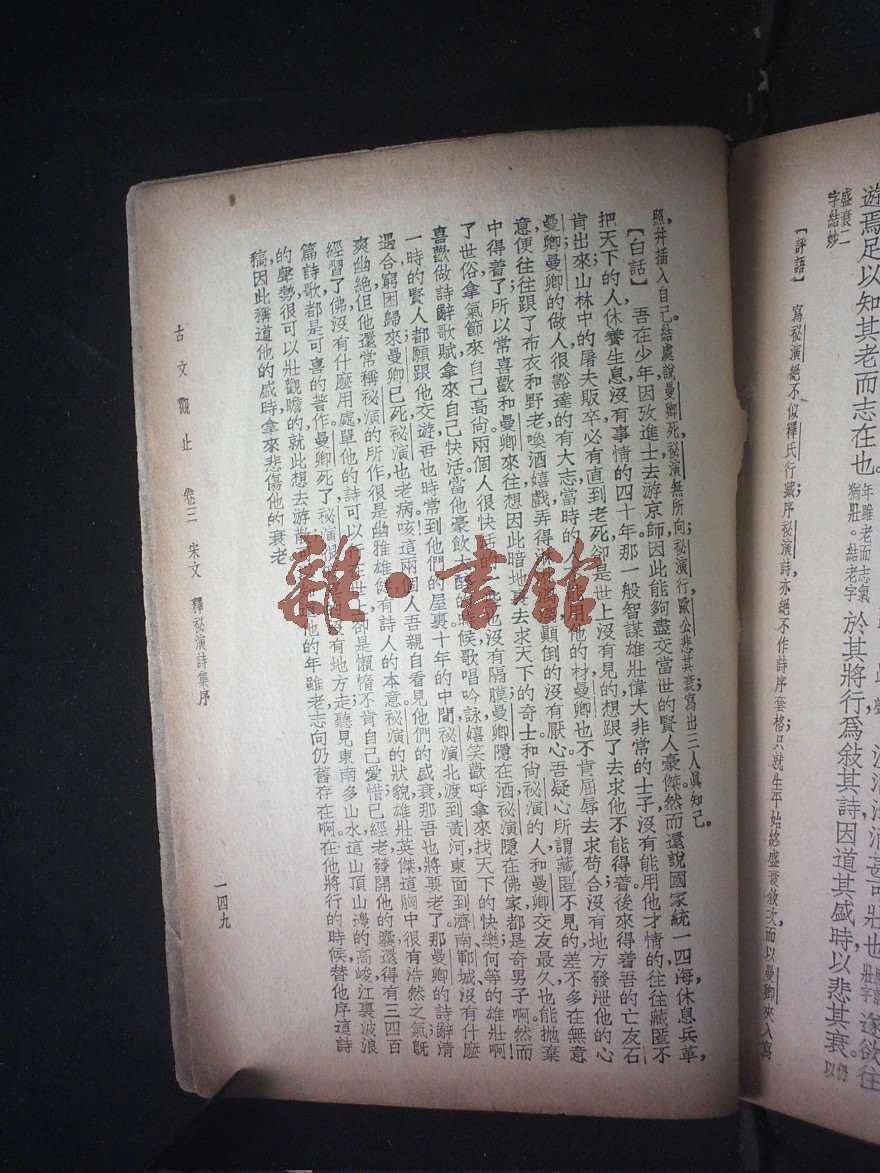 遊焉足以知其老而志在也
年雖老而志氣
猶壯。結老字
於其將行爲敍其詩因道其盛時以悲其衰
仍
以
盛衰二
字結妙
【評語】 寫祕演絕不似釋氏行藏序祕演詩亦絕不作詩序套格只就生平始終盛衰敘次而以曼卿夾入寫
照并插入自己結處說曼卿死祕演無所向祕演行歐公悲其衰寫出三人眞知己。
【白話】 吾在少年因攷進士去游京師因此能夠盡交當世的賢人豪傑然而還說國家統一四海休息兵革，
把天下的人休養生息沒有事情的四十年那一般智謀雄壯偉大非常的士子沒有能用他才情的往往藏匿不
肯出來；山林中的屠夫販卒必有直到老死卻是世上沒有見的想跟了去求他不能得着後來得着吾的亡友石
曼卿；曼卿的做人很豁達的有大志當時的用他的材曼卿也不肯屈辱去求苟合沒有地方發泄他的心
意便往往跟了布衣和野老喚酒嬉戲弄得顛倒的沒有厭心。吾疑心所謂藏匿不見的差不多在無意
中得着了所以常喜歡和曼卿來往想因此暗地裏去求天下的奇士和尙祕演的人和曼卿交友最久也能拋棄
了世俗拿氣節來自己高尙。兩個人很快活的也沒有隔膜曼卿隱在酒祕演隱在佛家都是奇男子啊。然而
喜歡做詩辭歌賦拿來自己快活當他豪飲大醉的時候歌唱吟詠嬉笑歡呼拿來找天下的快樂何等的雄壯啊
一時的賢人都願跟他交遊吾也時常到他們的屋裏十年的中間祕演北渡到黃河東面到濟南鄆城沒有什麼
遇合窮困歸來曼卿已死祕演也老病咳這兩個人吾親自看見他們的盛衰那吾也將要老了那曼卿的詩辭清
爽幽絕但他還常稱祕演的所作很是幽雅雄健有詩人的本意祕演的狀貌雄壯英傑這胸中很有浩然之氣旣
經習了佛沒有什麼用處單他的詩可以行在世上卻是懶惰不肯自己愛惜已經老發開他的囊還得有三四百
篇詩歌都是可喜的著作曼卿死了祕演很沒有地方走聽見東南多山水這山頂山邊的高峻江裏波浪
的聲勢很可以壯觀瞻的就此想去游散他的年雖老志向仍舊存在啊在他將行的時候替他序這詩
稿因此稱道他的盛時拿來悲傷他的衰老
古文觀止 卷三 宋文 釋祕演詩集序
一四九
雜·書館